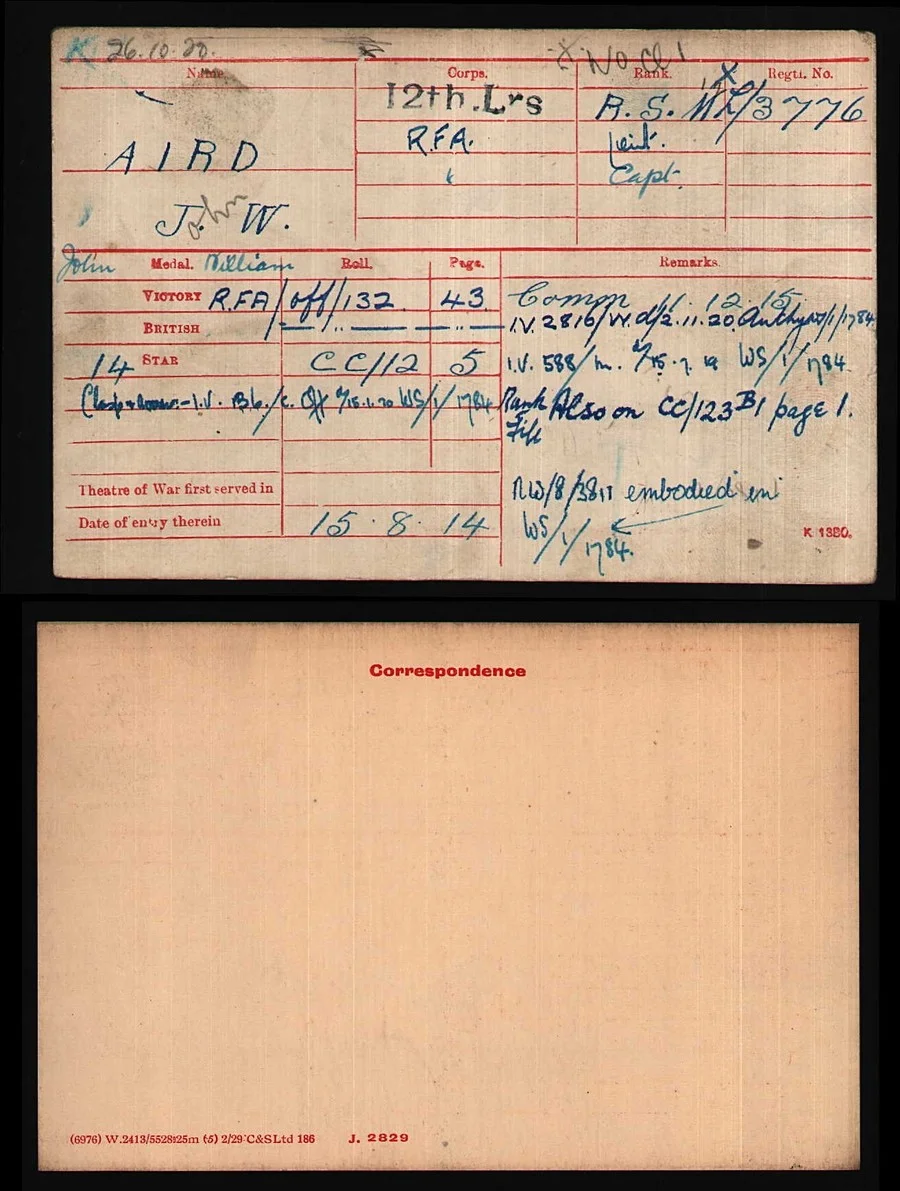 K 26.10.20. X No Cl 1
Name. Corps. Rank. Regtl. No.
12th.Lrs R.S.M. X L/3776
R.F.A. Leut.
AIRD " Capt.
J. John W.
John Medal. William Roll. Page. Remarks.
VICTORY RFA/off/132 43 Comm 11.12.15
BRITISH — " — — " — I.V. 2816/W.d/2.11.20. Auth WS/1/1784
14 STAR CC/1/2 5 I.V. 588/ d/15.7.19 WS/1/1784.
Clasp & - I.V. d/15.1.20 WS/1/1784 Rank & File Also on CC/123 B1 page 1.
Theatre of War first served in RW/8/3811 embodied in
Date of entry therein 15.8.14 WS/1/1784.
K 1380.
Correspondence
(6976) W.2413/5528 25m (5) 2/29 C&SLtd 186 J. 2829